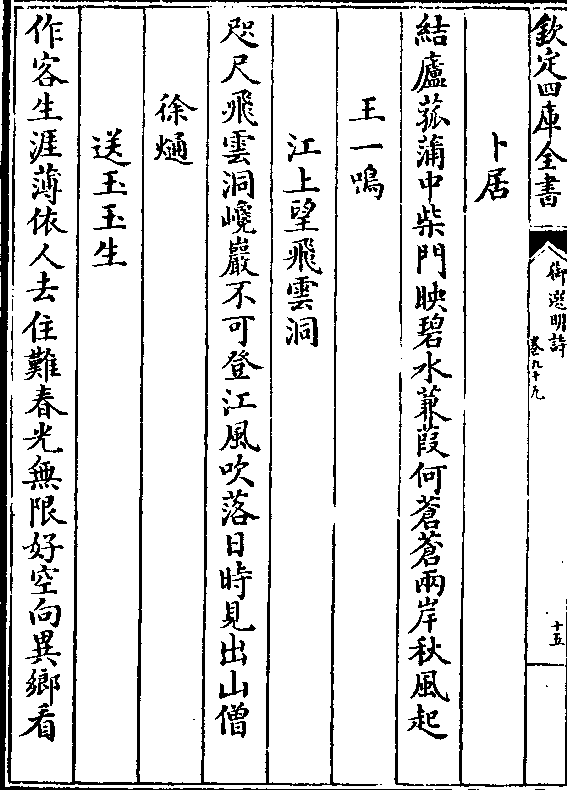 欽定四庫全書
御選明詩
卷九十九
十五
卜居
結廬菰蒲中柴門映碧水蒹葭何蒼蒼兩岸秋風起
王一鳴
江上望飛雲洞
咫尺飛雲洞巉巖不可登江風吹落日時見出山僧
徐𤊹
送玉玉生
作客生涯薄依人去住難春光無限好空向異鄉看